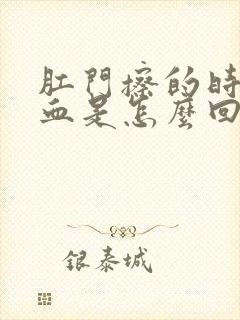 肛門擦的時
血是怎麼回
銀泰城